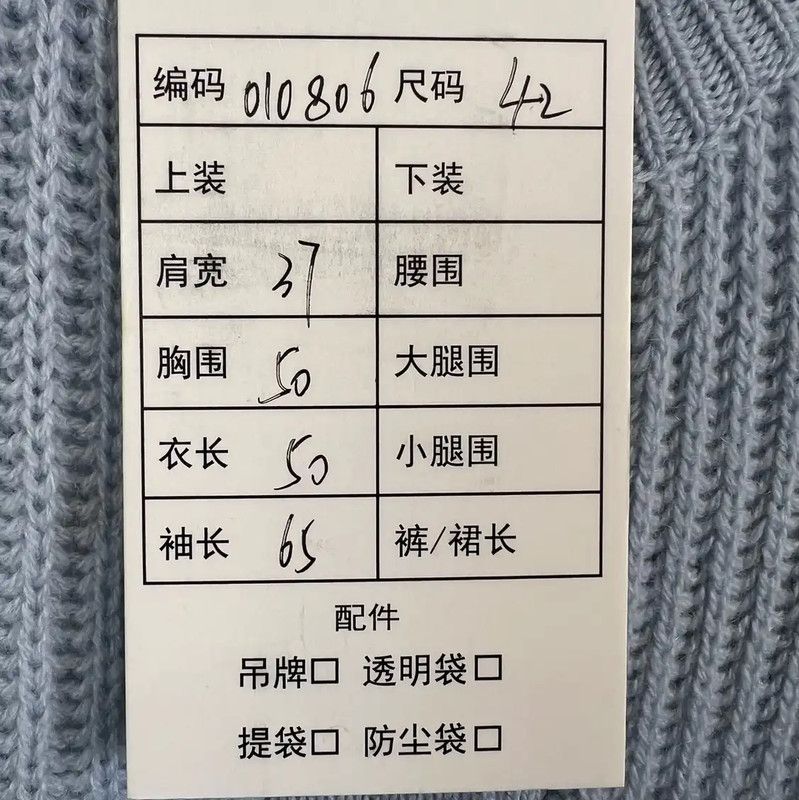 编码 010806 尺码 42
上装 下装
肩宽 37 腰围
胸围 50 大腿围
衣长 50 小腿围
袖长 65 裤/裙长
配件
吊牌□ 透明袋□
提袋□ 防尘袋□